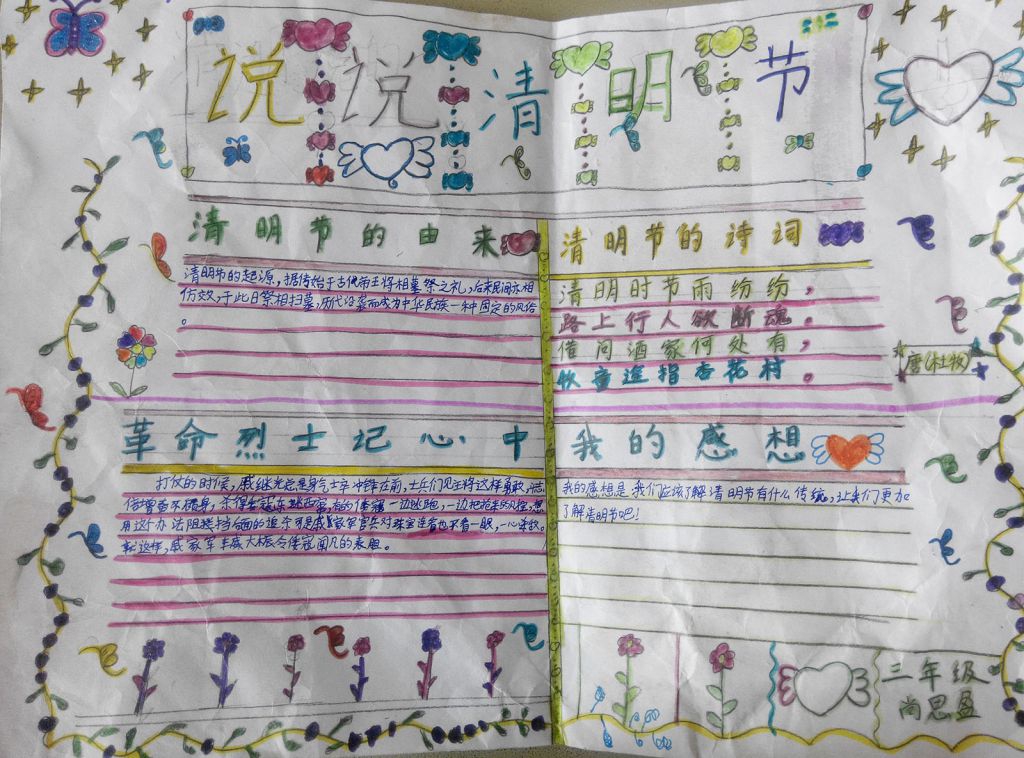 说说清明节
清明节的由来
清明节的起源，据传始于古代帝王将相墓祭之礼，后来民间亦相
仿效，于此日祭相扫墓，历代沿袭而成为中华民族一种固定的风俗
。
清明节的诗词
清明时节雨纷纷，
路上行人欲断魂。
借问酒家何处有，
牧童遥指杏花村。
唐(杜牧)
革命烈士记心中
打仗的时候，戚继光总是身先士卒冲锋在前，士兵们见主将这样勇敢，
倍增奋不顾身，杀得倭寇
一边逃跑，一边把抢来的
用这个办法阻挠
的追杀可是戚家军官兵对珠宝连看也不看一眼，一心杀敌。
就这样，戚家军
我的感想
我的感想是我们应该了解清明节有什么传统，让我们更加
了解清明节吧！
三年级
尚思盈